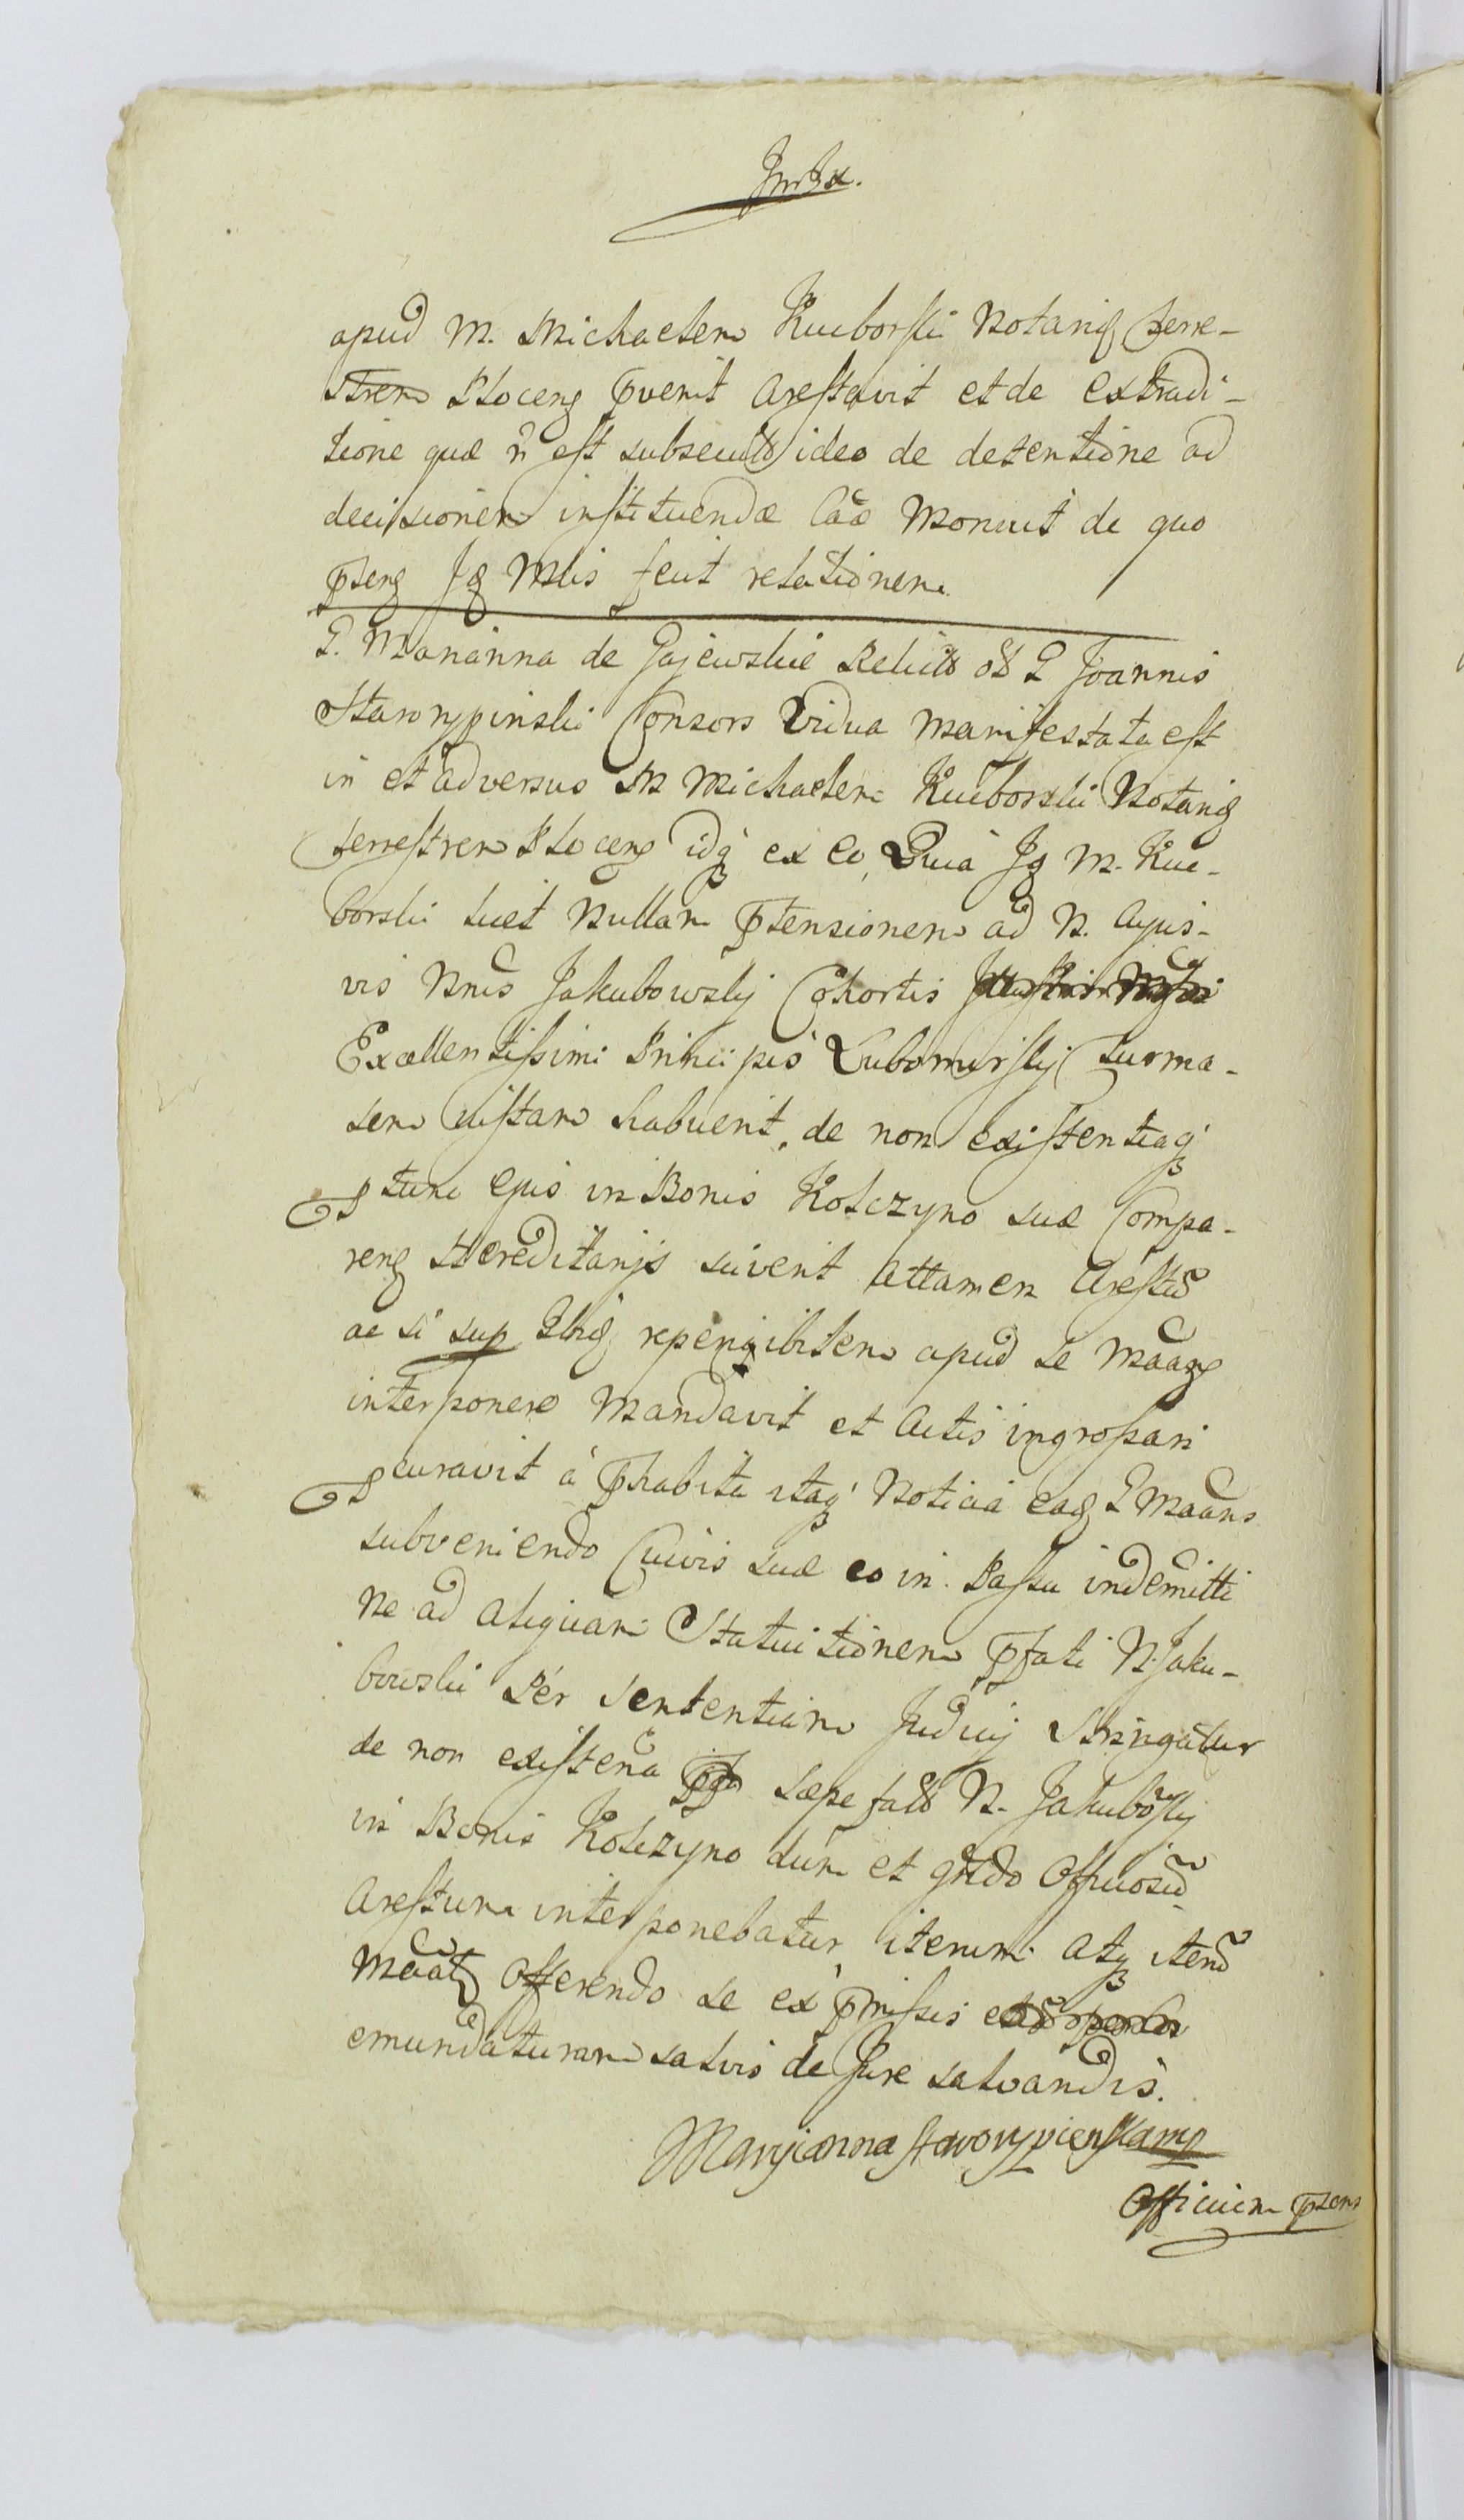 apud M. Michaelem Kucborski Notariũ Terre-
strem Plocens. pverit Arestavit et de extradi-
tione quæ ñ est subsecuta ideo de detentione ad
decisionem instituendæ Cãæ Monuit de quo
pñens Js Mlis fecit relationem.
G. Marianna de Gajewskie Relicta ol. G Joannis
Staworypinski Consors Vidua Manifestata est
in et adversus M Michaelem Kucborski Notariũ
Terrestrem Plocens. idq. ex eo, Quia Js M. Kuc-
borski licet Nullam ptensionem ad N. Cujus-
vis Nñis Jakubowskij Cohortis
Excellentissimi Principis Lubomirskij Turma-
lem iustam habuerit, de non existentiaq.
ptunc ejus in Bonis Kolczyno suæ Compa-
rens Hereditarijs sciverit Attamen Arestũ
ac si sup Plñs reperibilem apud se Mãans
interponere Mandavit et Actis ingrossari
pcuravit à phabita itaq. Noticia eas G Mãans
subveniendo Curis suæ eo in Passu indemitti
Ne ad aliquam Statuitionem pfati N. Jaku-
bowski Per Sententiam Judicij Stringatur
de non existeña sæpe fati N. Jakubõskij
in Bonis Kolczyno dum et qñdo Officiosũ
Arestum interponebatur iterum atq. iterũ
Mãat. Offerendo se ex pmissis
emundaturam salvis de Jure salvandis.
Maryianna staworypienska mp
Officium pñens